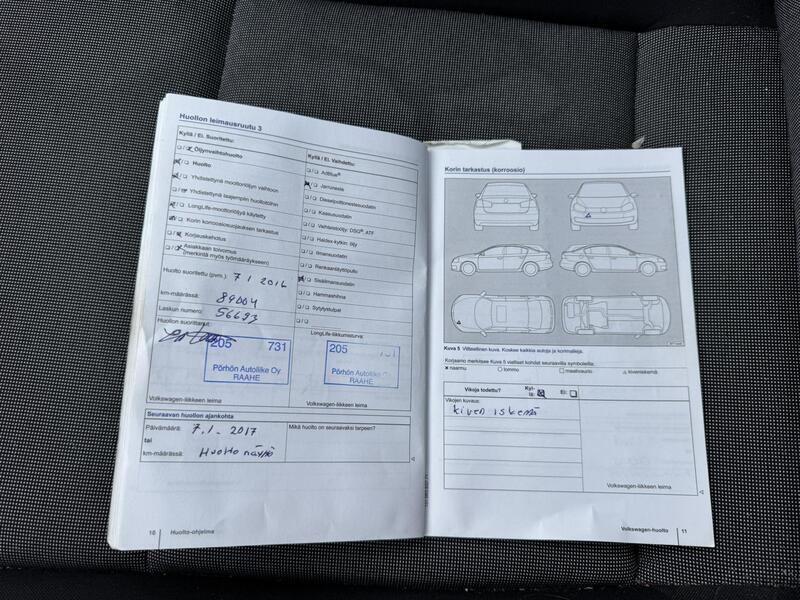 Huollon leimausruutu 3
Kyllä / Ei. Suoritettu:
Öljynvaihtohuolto
Huolto
Yhdistettynä moottoriöljyn vaihtoon
Yhdistettynä laajempiin huoltotöihin
LongLife-moottoriöljyä käytetty
Korin korroosiosuojauksen tarkastus
Korjauskehotus
Asiakkaan toivomus
(merkintä myös työmääräykseen)
Huolto suoritettu (pvm.): 7 1 2016
km-määrässä: 89004
Laskun numero: 56693
Huollon suorittanut:
205 731
Pörhön Autoliike Oy
RAAHE
Volkswagen-liikkeen leima
Kyllä / Ei. Vaihdettu:
AdBlue®
Jarruneste
Dieselpolttonestesuodatin
Kaasusuodatin
Vaihteistoöljy: DSG®, ATF
Haldex-kytkin: öljy
Ilmansuodatin
Renkaantäyttöpullo
Sisäilmansuodatin
Hammashihna
Sytytystulpat
LongLife-liikkumisturva:
205
Pörhön Autoliike Oy
RAAHE
Volkswagen-liikkeen leima
Seuraavan huollon ajankohta
Päivämäärä: 7.1. 2017
tai
km-määrässä: Huoltonäyttö
Mikä huolto on seuraavaksi tarpeen?
16 Huolto-ohjelma
Korin tarkastus (korroosio)
Kuva 5 Viitteellinen kuva. Koskee kaikkia autoja ja korimalleja.
Korjaamo merkitsee Kuva 5 vialliset kohdat seuraavilla symboleilla:
× naarmu ○ lommo □ maalivaurio △ kiveniskemä
Vikoja todettu? Kyl-
lä: Ei:
Vikojen kuvaus:
kiven iskemä
Volkswagen-liikkeen leima
Volkswagen-huolto 11